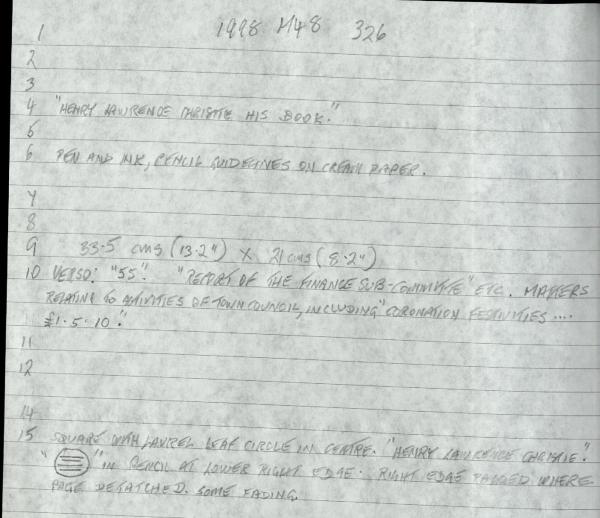 1 1998 M48 326
2
3
4 "HENRY LAWRENCE CHRISTIE HIS BOOK."
5
6 PEN AND INK, PENCIL GUIDELINES ON CREAM PAPER.
7
8
9 33.5 cms (13.2") X 21 cms (8.2")
10 VERSO: "55". "REPORT OF THE FINANCE SUB-COMMITTE" ETC. MATTERS
RELATING TO ACTIVITIES OF TOWN COUNCIL, INCLUDING "CORONATION FESTIVITIES ....
£1.5.10".
11
12
14
15 SQUARE WITH LAUREL LEAF CIRCLE IN CENTRE. "HENRY LAWRENCE CHRISTIE."
" " IN PENCIL AT LOWER RIGHT EDGE. RIGHT EDGE RAGGED WHERE
PAGE DETATCHED. SOME FADING.